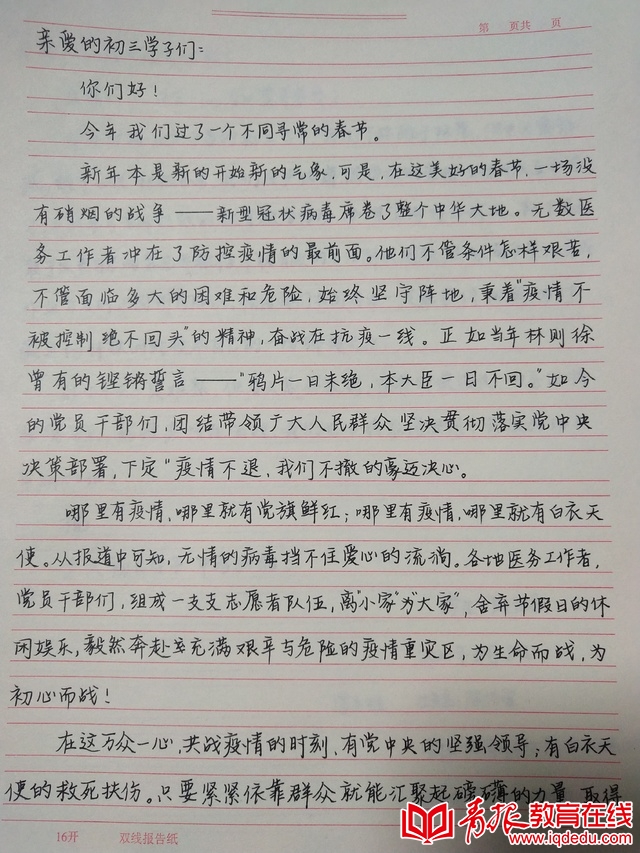 第 页共 页
亲爱的初三学子们：
你们好！
今年我们过了一个不同寻常的春节。
新年本是新的开始新的气象，可是，在这美好的春节，一场没
有硝烟的战争——新型冠状病毒席卷了整个中华大地。无数医
务工作者冲在了防控疫情的最前面。他们不管条件怎样艰苦，
不管面临多大的困难和危险，始终坚守阵地，秉着“疫情不
被控制绝不回头”的精神，奋战在抗疫一线。正如当年林则徐
曾有的铿锵誓言——“鸦片一日未绝，本大臣一日不回。”如今
的党员干部们，团结带领广大人民群众坚决贯彻落实党中央
决策部署，下定“疫情不退，我们不撤的豪迈决心。
哪里有疫情，哪里就有党旗鲜红；哪里有疫情，哪里就有白衣天
使。从报道中可知，无情的病毒挡不住爱心的流淌。各地医务工作者，
党员干部们，组成一支支志愿者队伍，离“小家”为“大家”，舍弃节假日的休
闲娱乐，毅然奔赴至充满艰辛与危险的疫情重灾区，为生命而战，为
初心而战！
在这万众一心，共战疫情的时刻，有党中央的坚强领导；有白衣天
使的救死扶伤。只要紧紧依靠群众就能汇聚起磅礴的力量，取得
16开 双线报告纸
青报教育在线
www.iqdedu.com